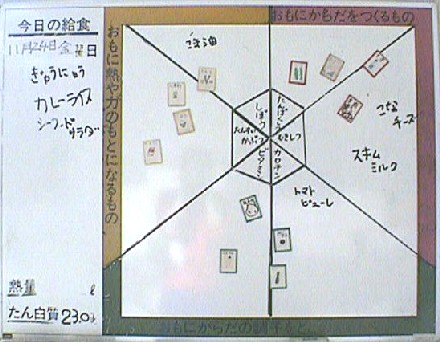 今日の給食
11月24日金曜日
ぎゅうにゅう
カレーライス
シーフード
サラダ
熱量
たん白質 23.0
おもに熱や力のもとになるもの
おもにからだをつくるもの
ごま油
こな
チーズ
スキム
ミルク
トマト
ピューレ
しぼう
たんぱくしつ
むきしつ
カロテン
ビタミンC
おもにからだの調子を